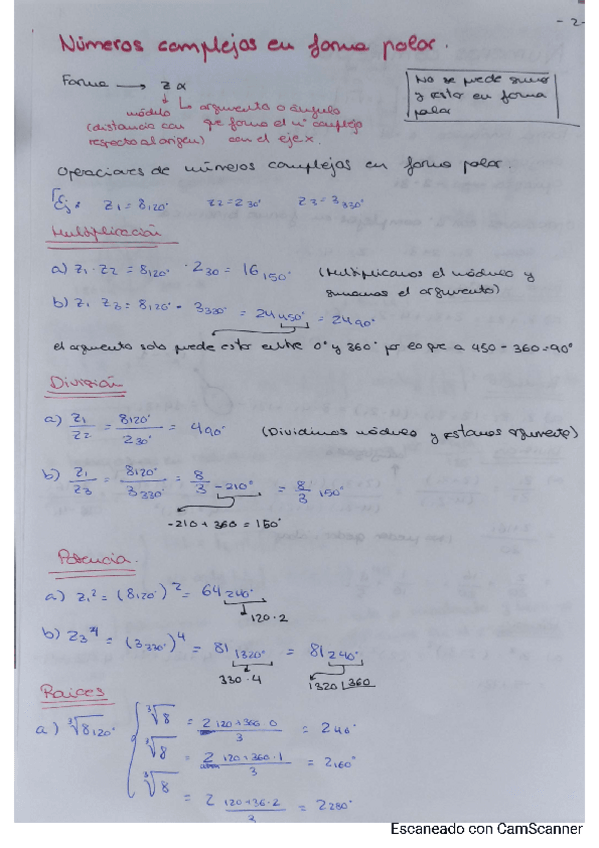 - 2 -
Números complejos en forma polar.
Forma → z α
módulo
(distancia con
respecto al origen)
argumento o ángulo
que forma el nº complejo
con el eje x.
No se puede sumar
y restar en forma
polar
Operaciones de números complejos en forma polar
Ej: z1 = 8120° z2 = 230° z3 = 3330°
Multiplicación
a) z1 · z2 = 8120° · 230 = 16150° (Multiplicamos el módulo y
sumamos el argumento)
b) z1 z3 = 8120° · 3330° = 24450° = 2490°
el argumento solo puede estar entre 0° y 360° por lo que a 450 - 360 = 90°
División
a) z1/z2 = 8120°/230° = 490° (Dividimos módulo y restamos argumento)
b) z1/z3 = 8120°/3330° = 8/3 -210° = 8/3 150°
-210 + 360 = 150°
Potencia.
a) z1² = (8120°)² = 64240°
120·2
b) z3⁴ = (3330°)⁴ = 811320° = 81240°
330·4 1320 |360
Raices
a) ³√8120° ³√8 = 2 120+360·0/3 = 240°
³√8 = 2 120+360·1/3 = 2160°
³√8 = 2 120+36·2/3 = 2280°
Escaneado con CamScanner